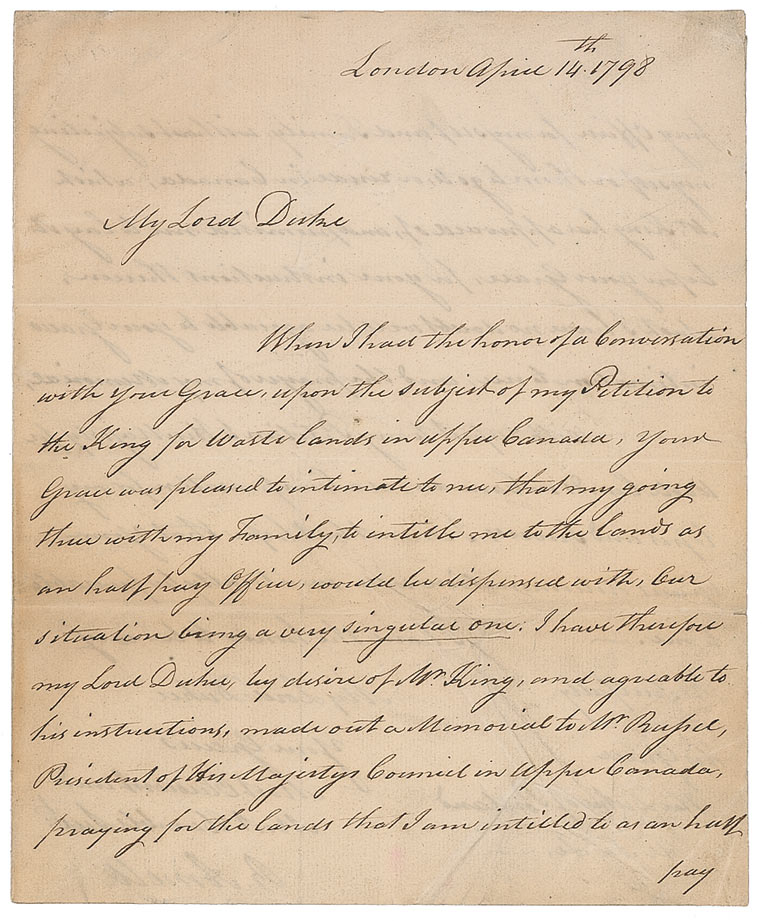 London April 14th. 1798
My Lord Duke
When I had the honor of a Conversation
with your Grace, upon the subject of my Petition to
the King for Waste lands in upper Canada, Your
Grace was pleased to intimate to me, that my going
there with my Family, to intitle me to the lands as
an half pay Officer, would be dispensed with, our
situation being a very singular one. I have therefore
my Lord Duke, by desire of Mr. King, and agreable to
his instructions, made out a Memorial to Mr. Russel,
President of His Majestys Council in Upper Canada,
praying for the lands that I am intitled to as an half
pay